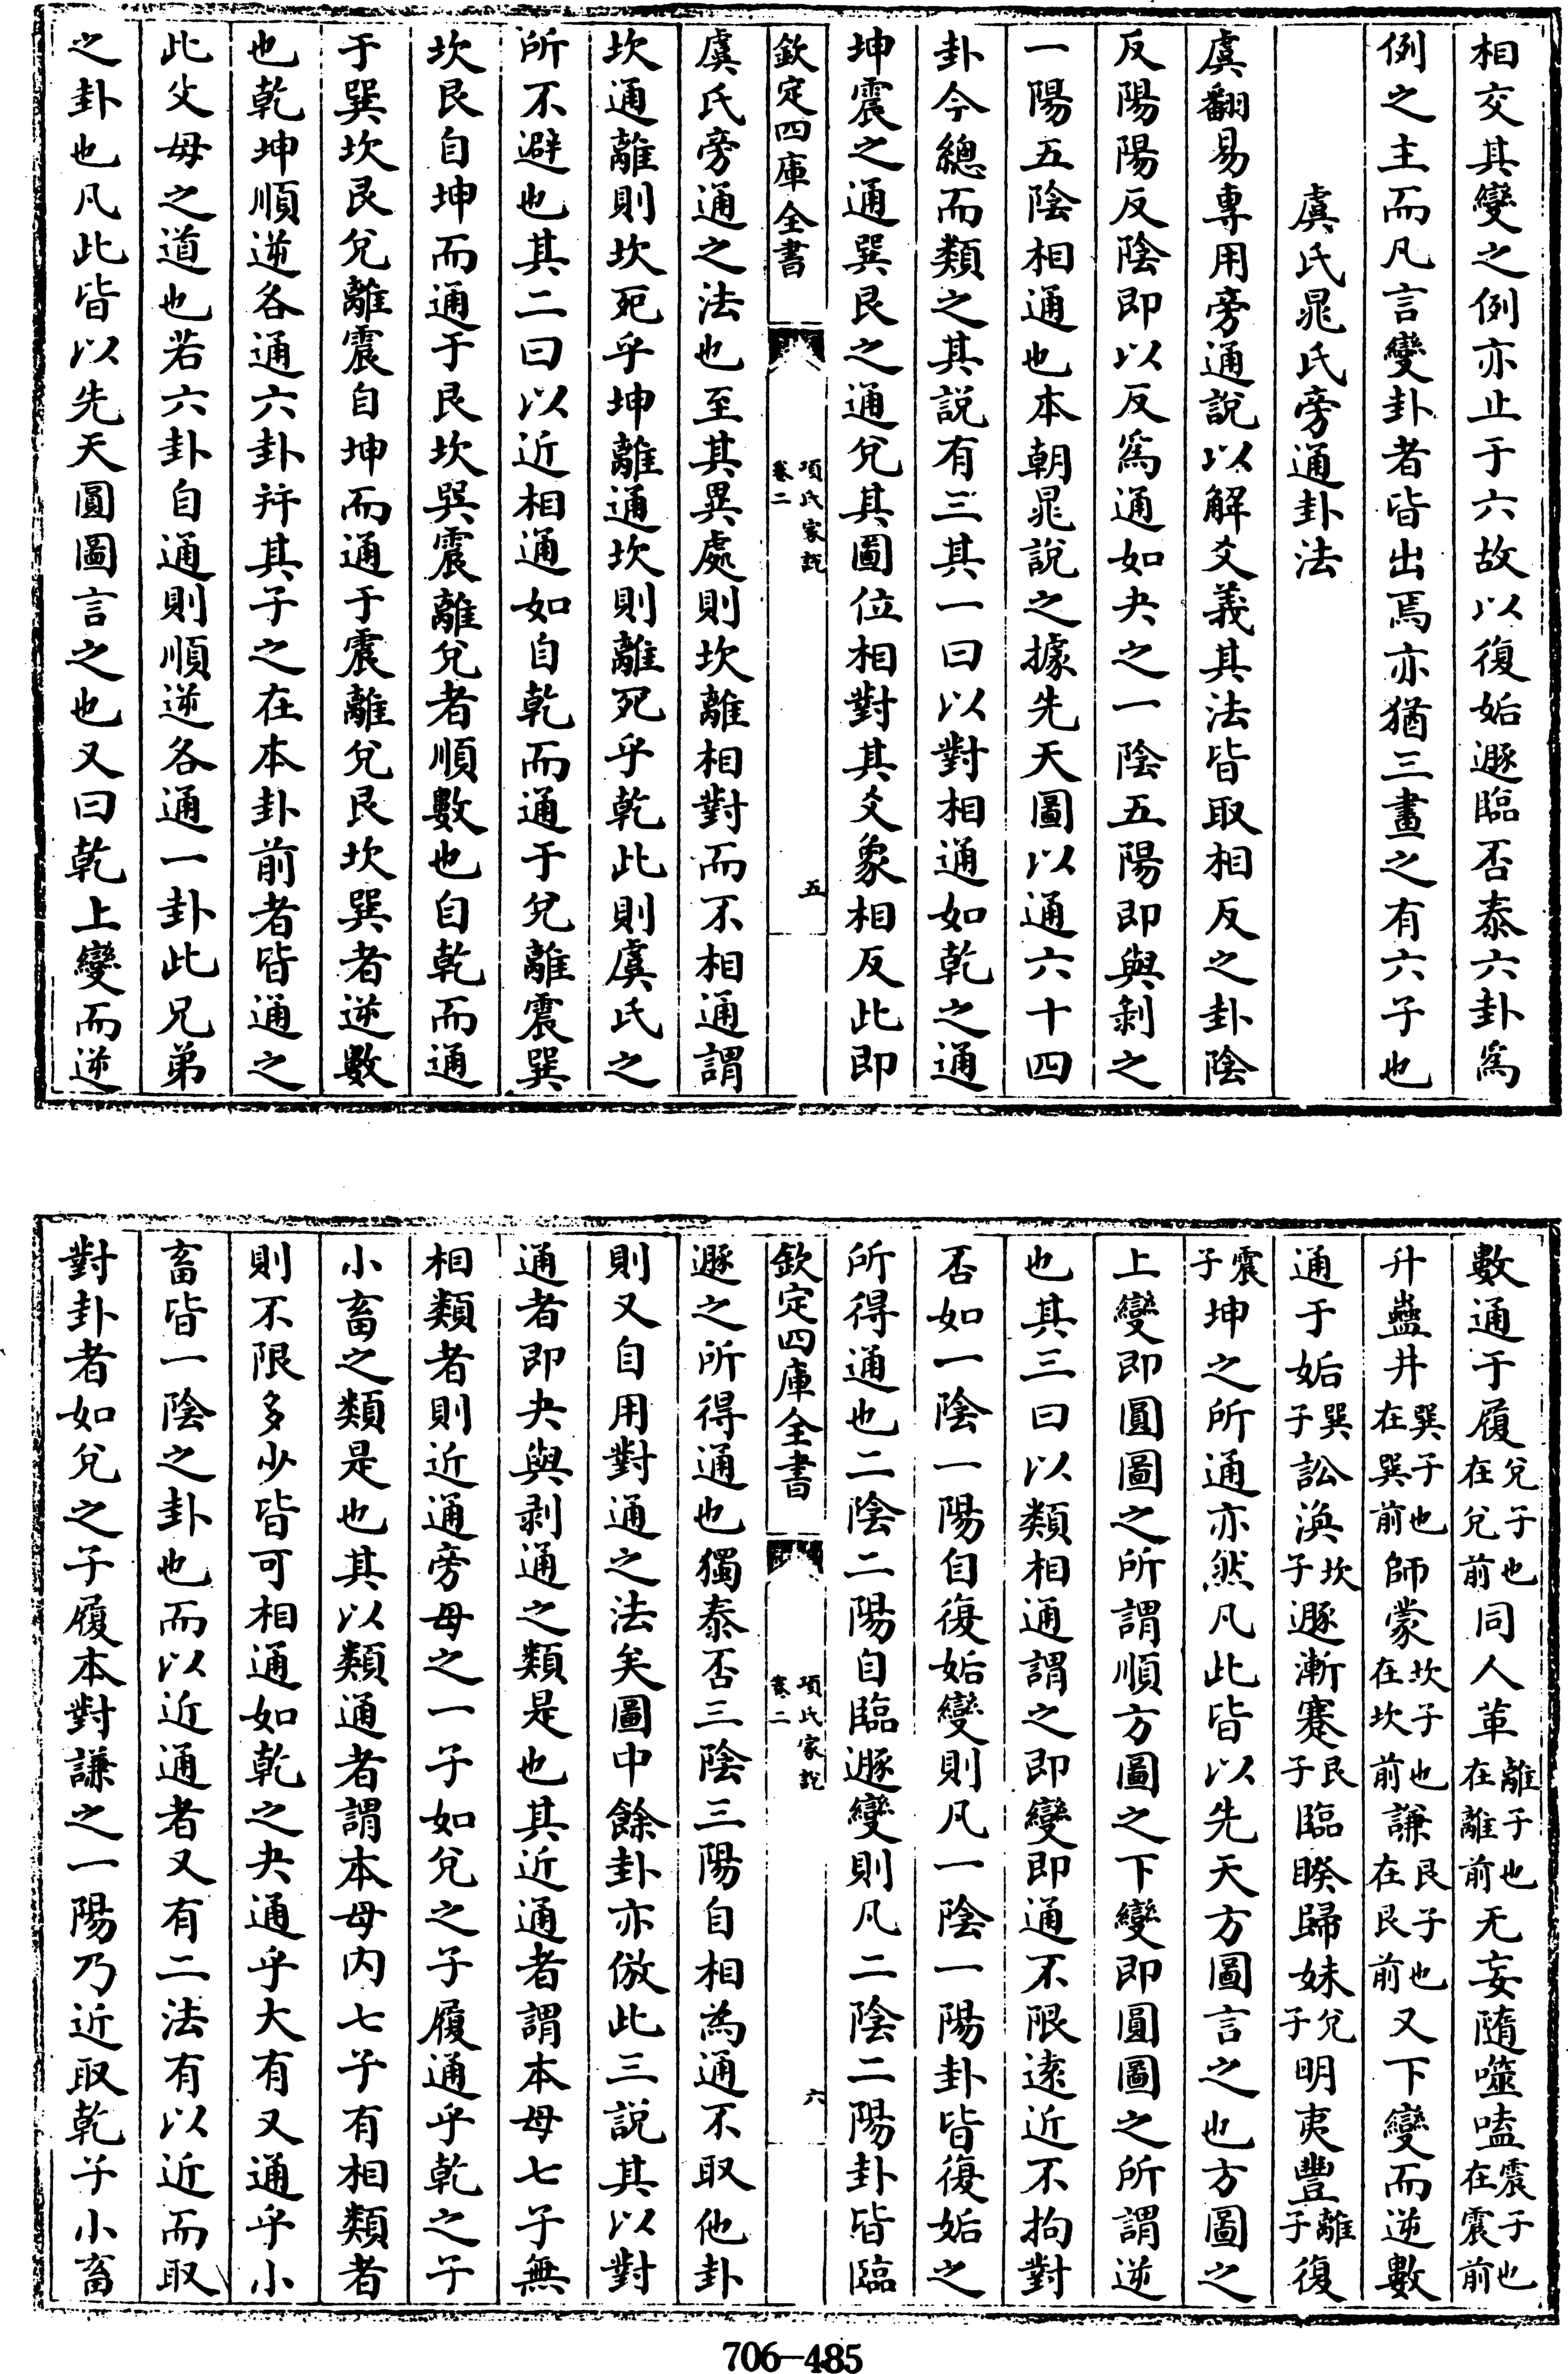 相交其變之例亦止于六故以復姤遯臨否泰六卦爲
例之主而凡言變卦者皆出焉亦猶三畫之有六子也
虞氏晁氏旁通卦法
虞翻易專用旁通說以解爻義其法皆取相反之卦陰
反陽陽反陰即以反爲通如夬之一陰五陽即與剝之
一陽五陰相通也本朝晁說之據先天圖以通六十四
卦今總而類之其說有三其一曰以對相通如乾之通
坤震之通巽艮之通兌其圖位相對其爻象相反此即
欽定四庫全書
項氏家說
卷二
五
虞氏旁通之法也至其異處則坎離相對而不相通謂
坎通離則坎死乎坤離通坎則離死乎乾此則虞氏之
所不避也其二曰以近相通如自乾而通于兌離震巽
坎艮自坤而通于艮坎巽震離兌者順數也自乾而通
于巽坎艮兌離震自坤而通于震離兌艮坎巽者逆數
也乾坤順逆各通六卦并其子之在本卦前者皆通之
此父母之道也若六卦自通則順逆各通一卦此兄弟
之卦也凡此皆以先天圓圖言之也又曰乾上變而逆
數通于履兌子也在兌前同人革離子也在離前无妄隨噬嗑震子也在震前
升蠱井巽子也在巽前師蒙坎子也在坎前謙艮子也在艮前又下變而逆數
通于姤巽子訟渙坎子遯漸蹇艮子臨睽歸妹兌子明夷豐離子復
震子坤之所通亦然凡此皆以先天方圖言之也方圖之
上變即圓圖之所謂順方圖之下變即圓圖之所謂逆
也其三曰以類相通謂之即變即通不限遠近不拘對
否如一陰一陽自復姤變則凡一陰一陽卦皆復姤之
所得通也二陰二陽自臨遯變則凡二陰二陽卦皆臨
欽定四庫全書
項氏家說
卷二
六
遯之所得通也獨泰否三陰三陽自相為通不取他卦
則又自用對通之法矣圖中餘卦亦倣此三說其以對
通者即夬與剥通之類是也其近通者謂本母七子無
相類者則近通旁母之一子如兌之子履通乎乾之子
小畜之類是也其以類通者謂本母内七子有相類者
則不限多少皆可相通如乾之夬通乎大有又通乎小
畜皆一陰之卦也而以近通者又有二法有以近而取
對卦者如兌之子履本對謙之一陽乃近取乾子小畜
706—485